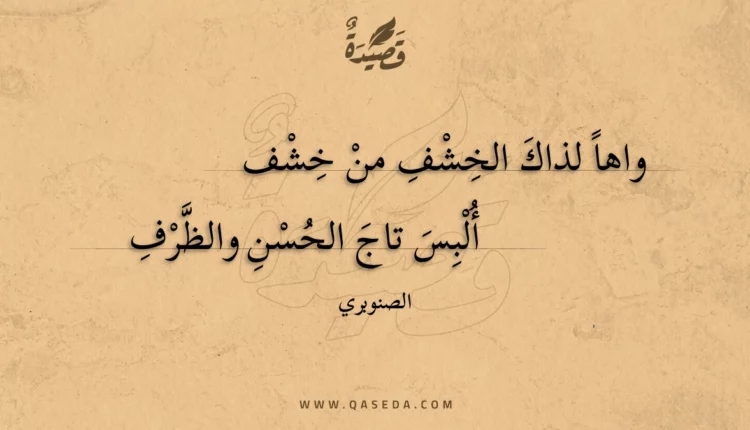 قَصِيْدَةٌ
واهاً لذاكَ الخِشْفِ منْ خِشْف
أُلْبِسَ تاجَ الحُسْنِ والظَّرْفِ
الصنوبري
WWW.QASEDA.COM